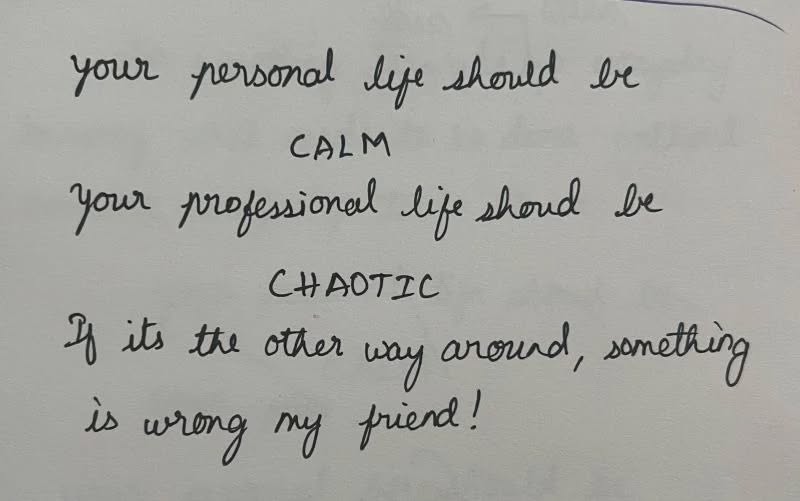 your personal life should be
CALM
Your professional life shoud be
CHAOTIC
If its the other way around, something
is wrong my friend!